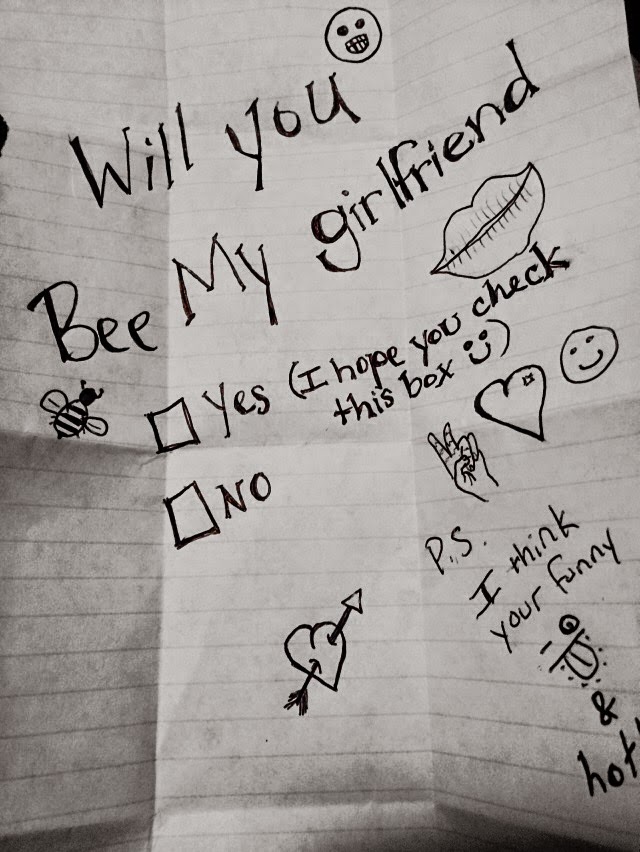 Will you
Bee My girlfriend
Yes (I hope you check
this box :))
NO
P.S.
I think
your funny
&
hot!